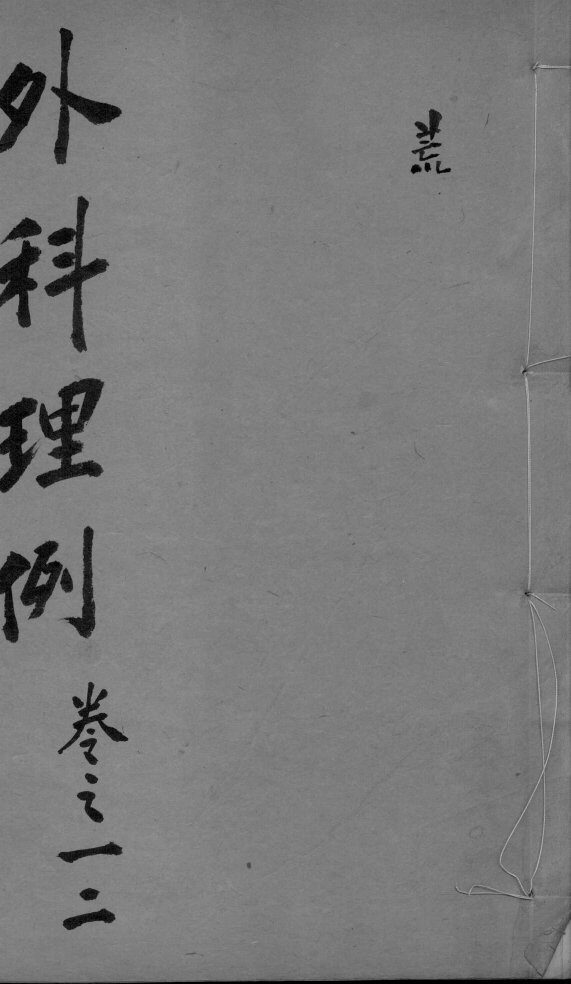 外科理例
卷之一二